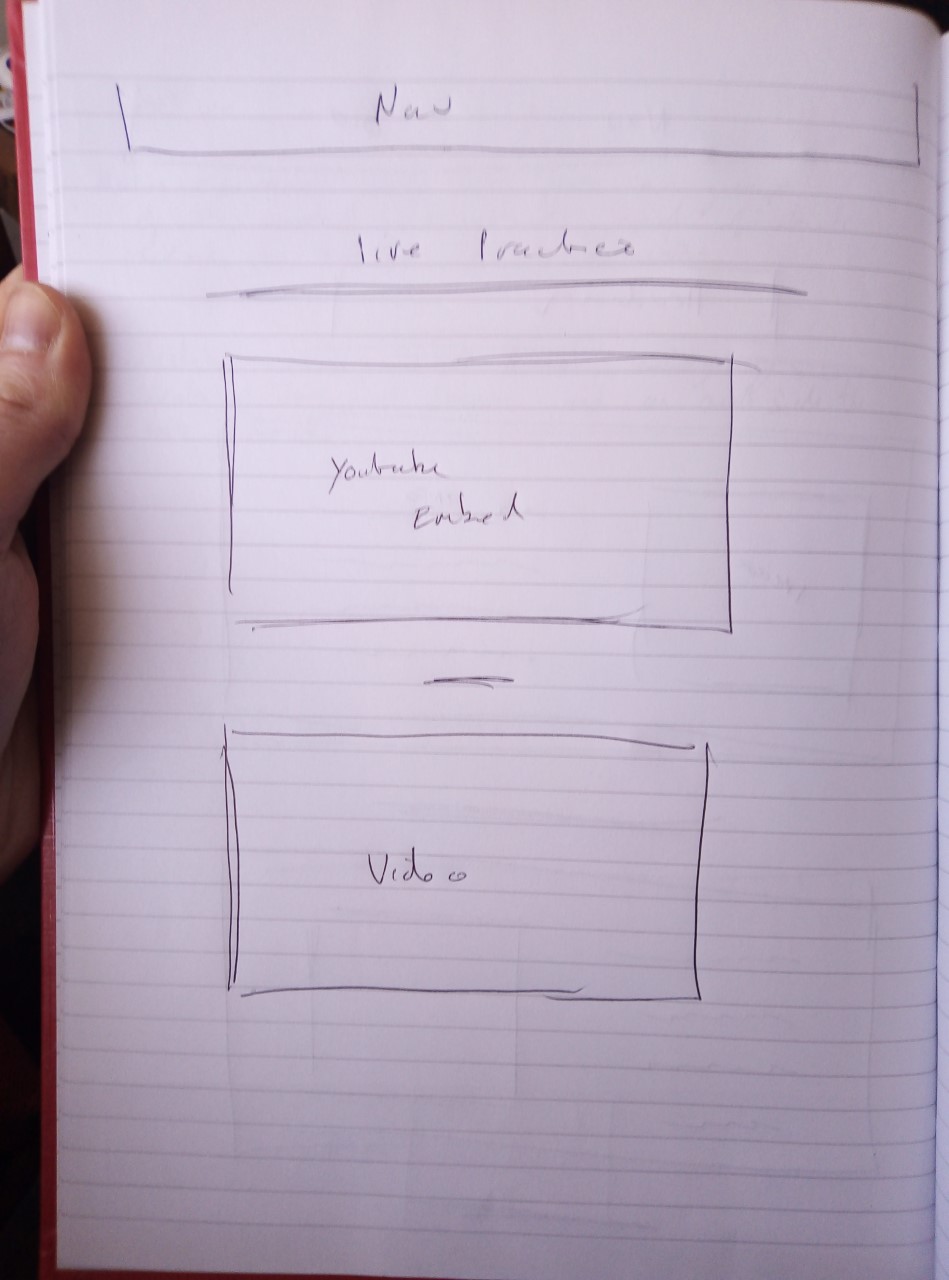 Nav
live Practice
Youtube
Embed
Video